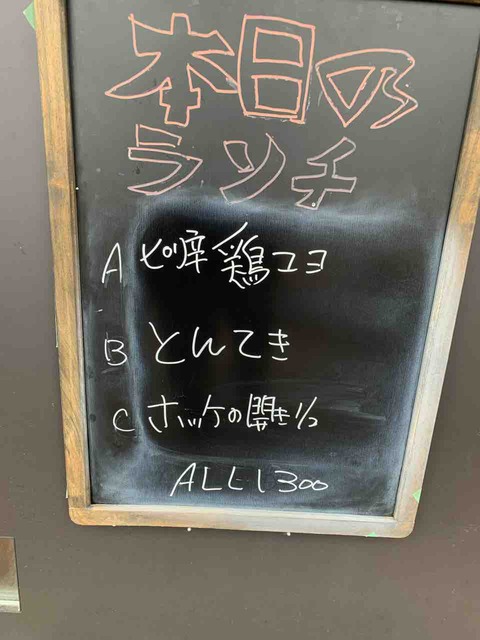 本日の
ランチ
A ピリ辛鶏ユヨ
B とんてき
C ホッケの開き1/2
ALL 1300